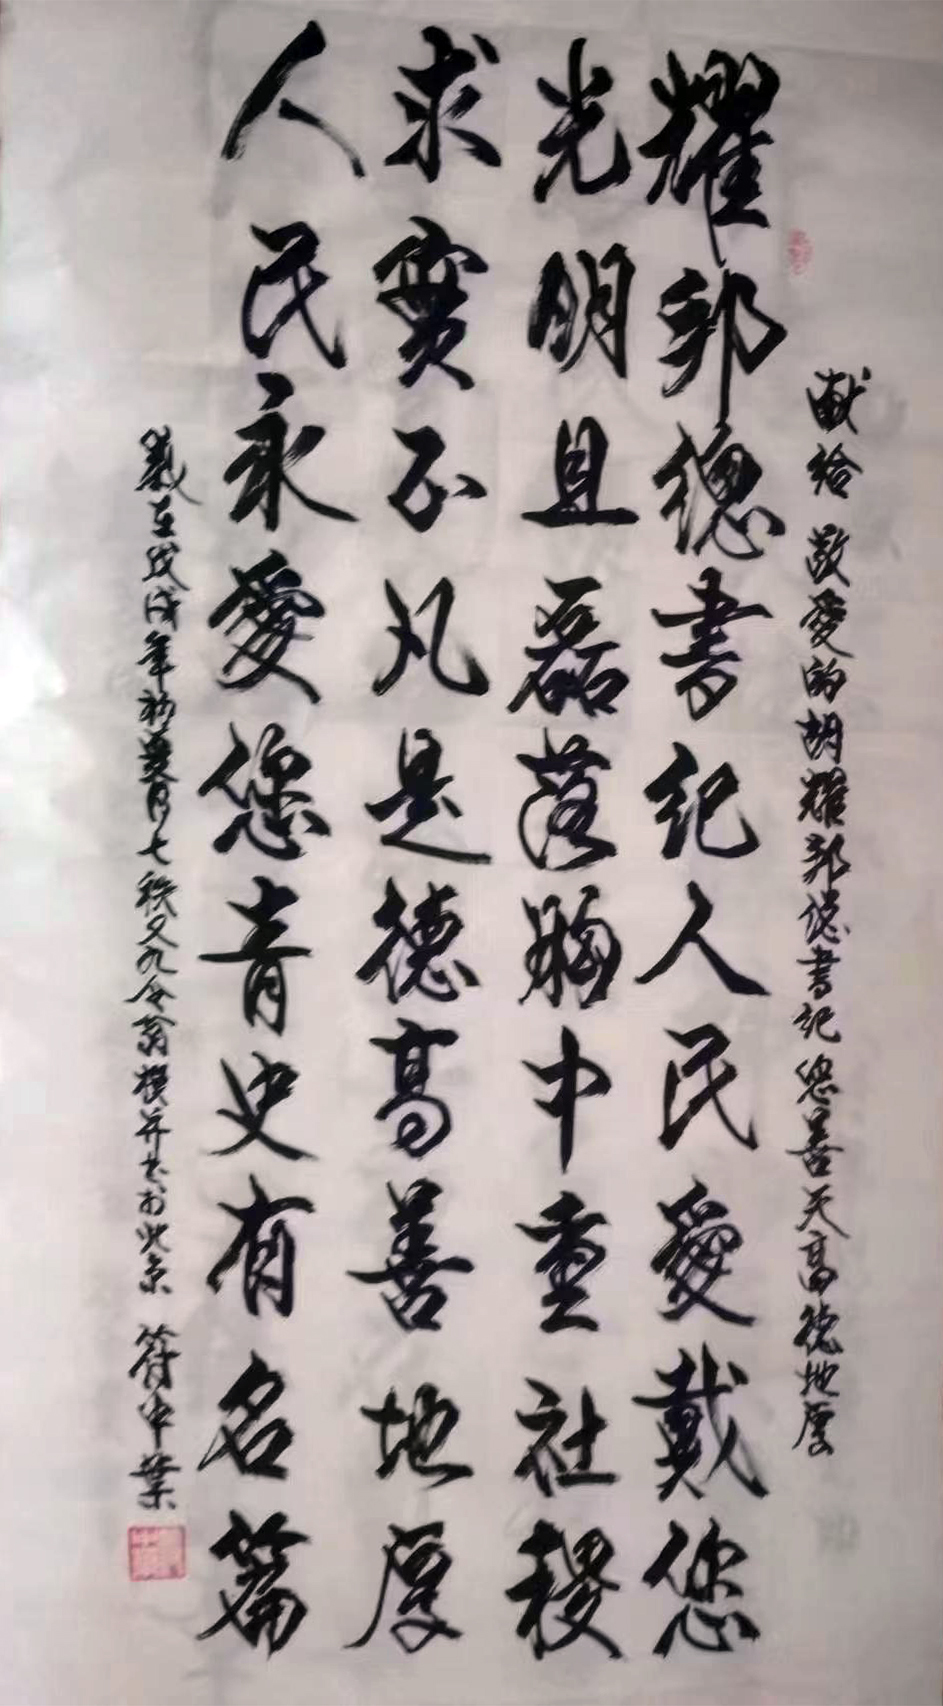 献给 敬愛的胡耀邦總書紀您善天高德地厚
耀邦總書紀人民愛戴您
光明且磊落胸中重社稷
求實不凡是德高善地厚
人民永愛您青史有名篇
歲在戊戌年初夏月七秩又九令翁撰并书於北京 符中業